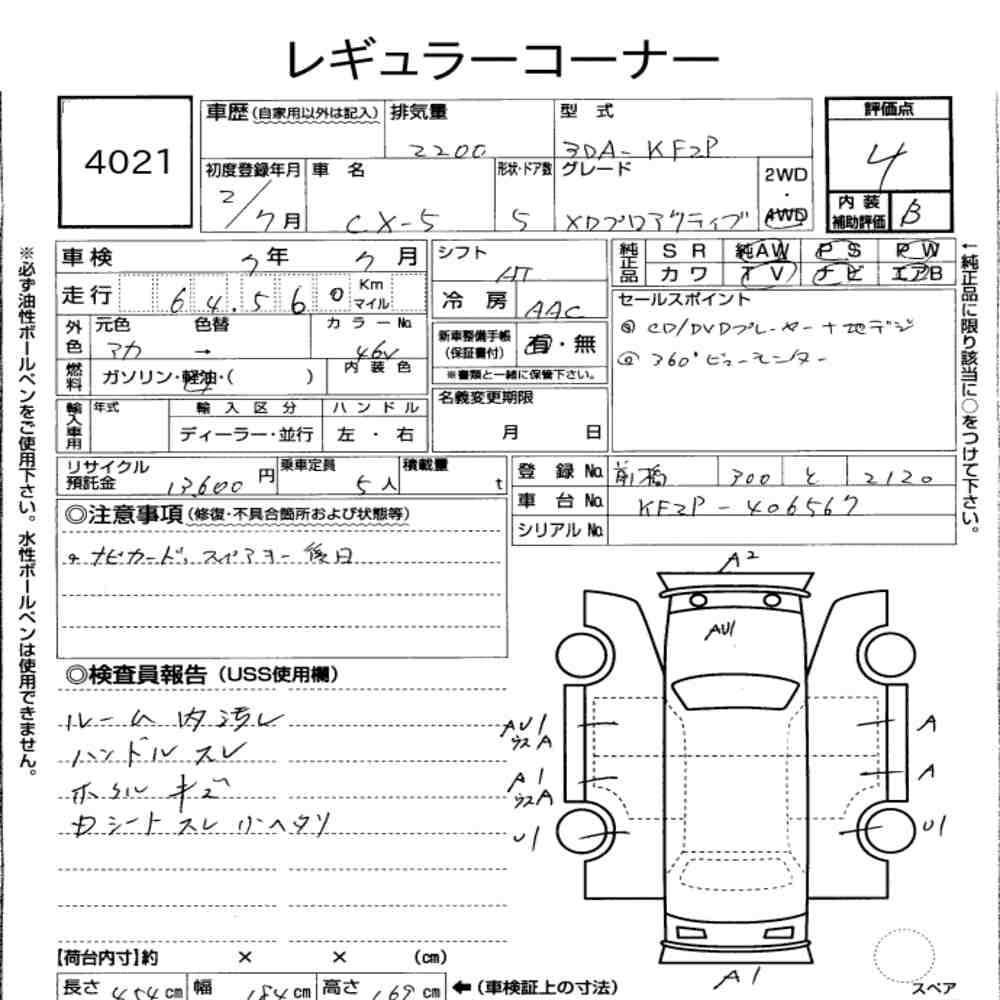 レギュラーコーナー
4021
車歴(自家用以外は記入)
排気量
2200
型式
3DA-KF2P
初度登録年月
2/7月
車名
CX-5
形状・ドア数
5
グレード
XDプロアクティブ
2WD
・
4WD
評価点
4
内装
補助評価
B
車検
7年7月
走行
64.560
Km
マイル
外色
元色
アカ
色替
→
カラーNo.
46V
燃料
ガソリン・軽油・( )
内装色
輸入車用
年式
輸入区分
ディーラー・並行
ハンドル
左・右
シフト
AT
冷房
AAC
新車整備手帳
(保証書付)
有・無
※書類と一緒に保管下さい。
名義変更期限
月 日
純正品
SR
純AW
PS
PW
カワ
TV
ナビ
エアB
セールスポイント
◎CD/DVDプレーヤー+地デジ
◎360°ビューモニター
←純正品に限り該当に○をつけて下さい。
※必ず油性ボールペンをご使用下さい。水性ボールペンは使用できません。
リサイクル
預託金
13,600円
乗車定員
5人
積載量
t
登録No.
前橋 300 と 2120
車台No.
KF2P-406567
シリアルNo.
◎注意事項(修復・不具合箇所および状態等)
ナビカード、スペアキー後日
◎検査員報告(USS使用欄)
ルーム内汚レ
ハンドルスレ
ホイルキズ
Dシートスレ小ヘタリ
A2
AU1
AU1
ウスA
A1
ウスA
U1
A
A
U1
A1
スペア
【荷台内寸】約 × × (cm)
長さ 454cm
幅 184cm
高さ 169cm
←(車検証上の寸法)